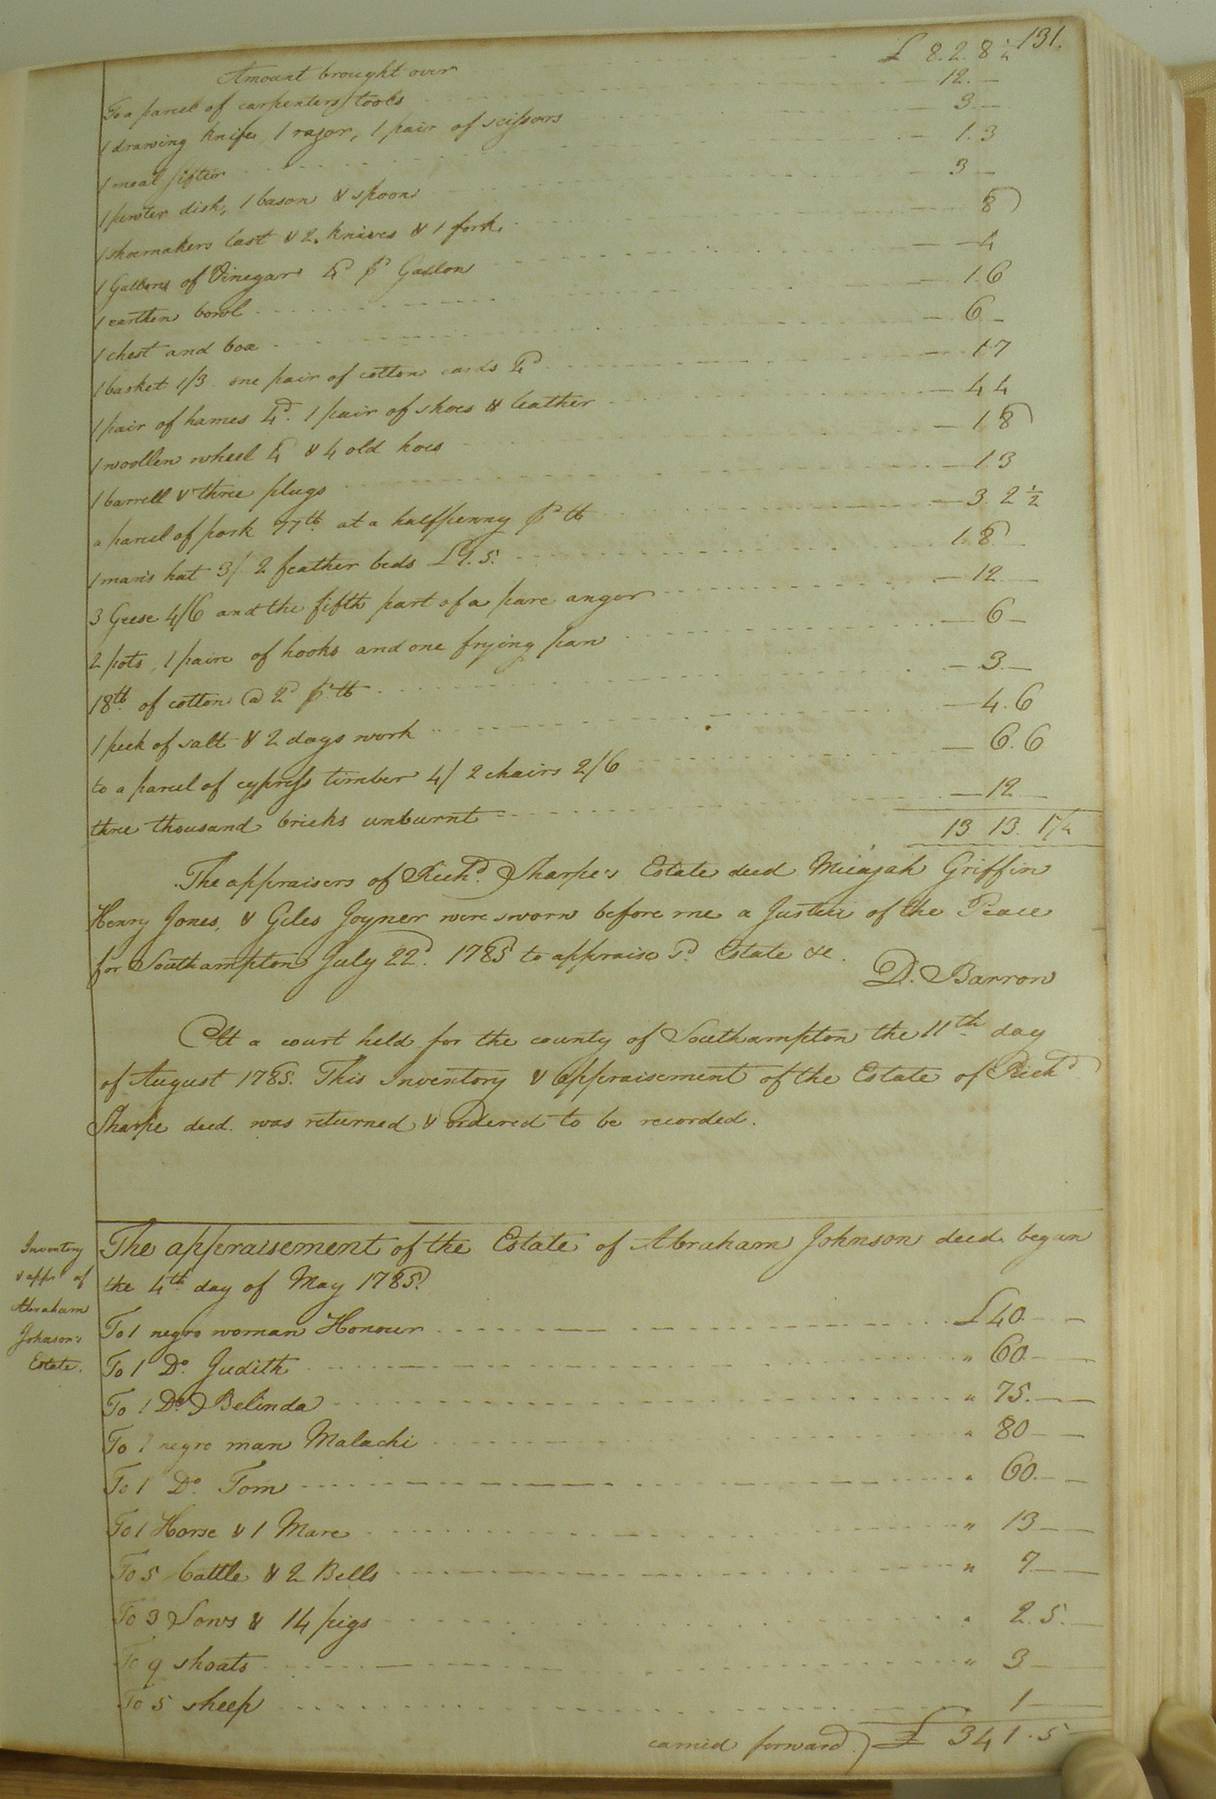 131.
Amount brought over £ 8. 2. 8 1/4
To a parcel of carpenters tools 12. —
1 drawing knife, 1 razor, 1 pair of scissors 3 —
1 meal sifter 1. 3
1 pewter dish, 1 bason & spoon 3 —
1 shoemakers last & 2 knives & 1 fork 8
1 Gallons of Vinegar 4d pr Gallon 4
1 earthen bowl 1. 6
1 chest and box 6 —
1 basket 1/3 one pair of cotton cards 4d 1 7
1 pair of hames 4d. 1 pair of shoes & leather 4 4
1 woollen wheel & 4 old hoes 1 8
1 barrell & three plugs 1 3
a parcel of pork 77lb at a halfpenny pr lb 3. 2 1/2
1 man's hat 3/ 2 feather beds £1. 5. 1. 8. —
3 Geese 4/6 and the fifth part of a pare anger 12 —
2 pots, 1 paire of hooks and one frying pan 6 —
18lb. of cotton @ 2d pr lb 3. —
1 peck of salt & 2 days work 4. 6
to a parcel of cypress timber 4/ 2 chairs 2/6 6. 6
three thousand bricks unburnt 12 —
13 13. 1 1/4
The appraisers of Richd. Sharpe's Estate decd Micajah Griffin
Henry Jones, & Giles Joyner were sworn before me a Justice of the Peace
for Southampton July 22d. 1785 to appraise sd. Estate &c.
D. Barron
At a court held for the county of Southampton the 11th day
of August 1785. This Inventory & appraisement of the Estate of Richd
Sharpe decd. was returned & ordered to be recorded.
Inventory
& appt of
Abraham
Johnson's
Estate.
The appraisement of the Estate of Abraham Johnson decd began
the 4th day of May 1785.
To 1 negro woman Honour £40 — —
To 1 Do. Judith " 60 — —
To 1 Do. Belinda " 75. — —
To 1 negro man Malachi " 80 — —
To 1 Do. Tom " 60. — —
To 1 Horse & 1 Mare " 13 — —
To 5 Cattle & 2 Bells " 7 — —
To 3 Sows & 14 pigs " 2. 5. —
To 9 shoats " 3 —
To 5 sheep 1 —
carried forward) £ 341. 5